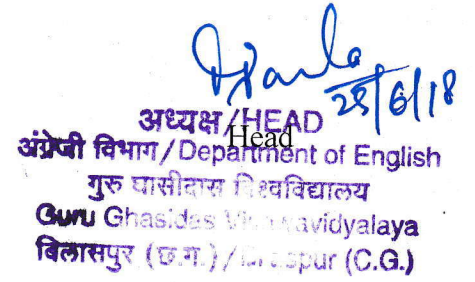 28/6/18
अध्यक्ष/HEAD
Head
अंग्रेजी विभाग/Department of English
गुरु घासीदास विश्वविद्यालय
Guru Ghasidas Vishwavidyalaya
बिलासपुर (छ.ग.)/Bilaspur (C.G.)